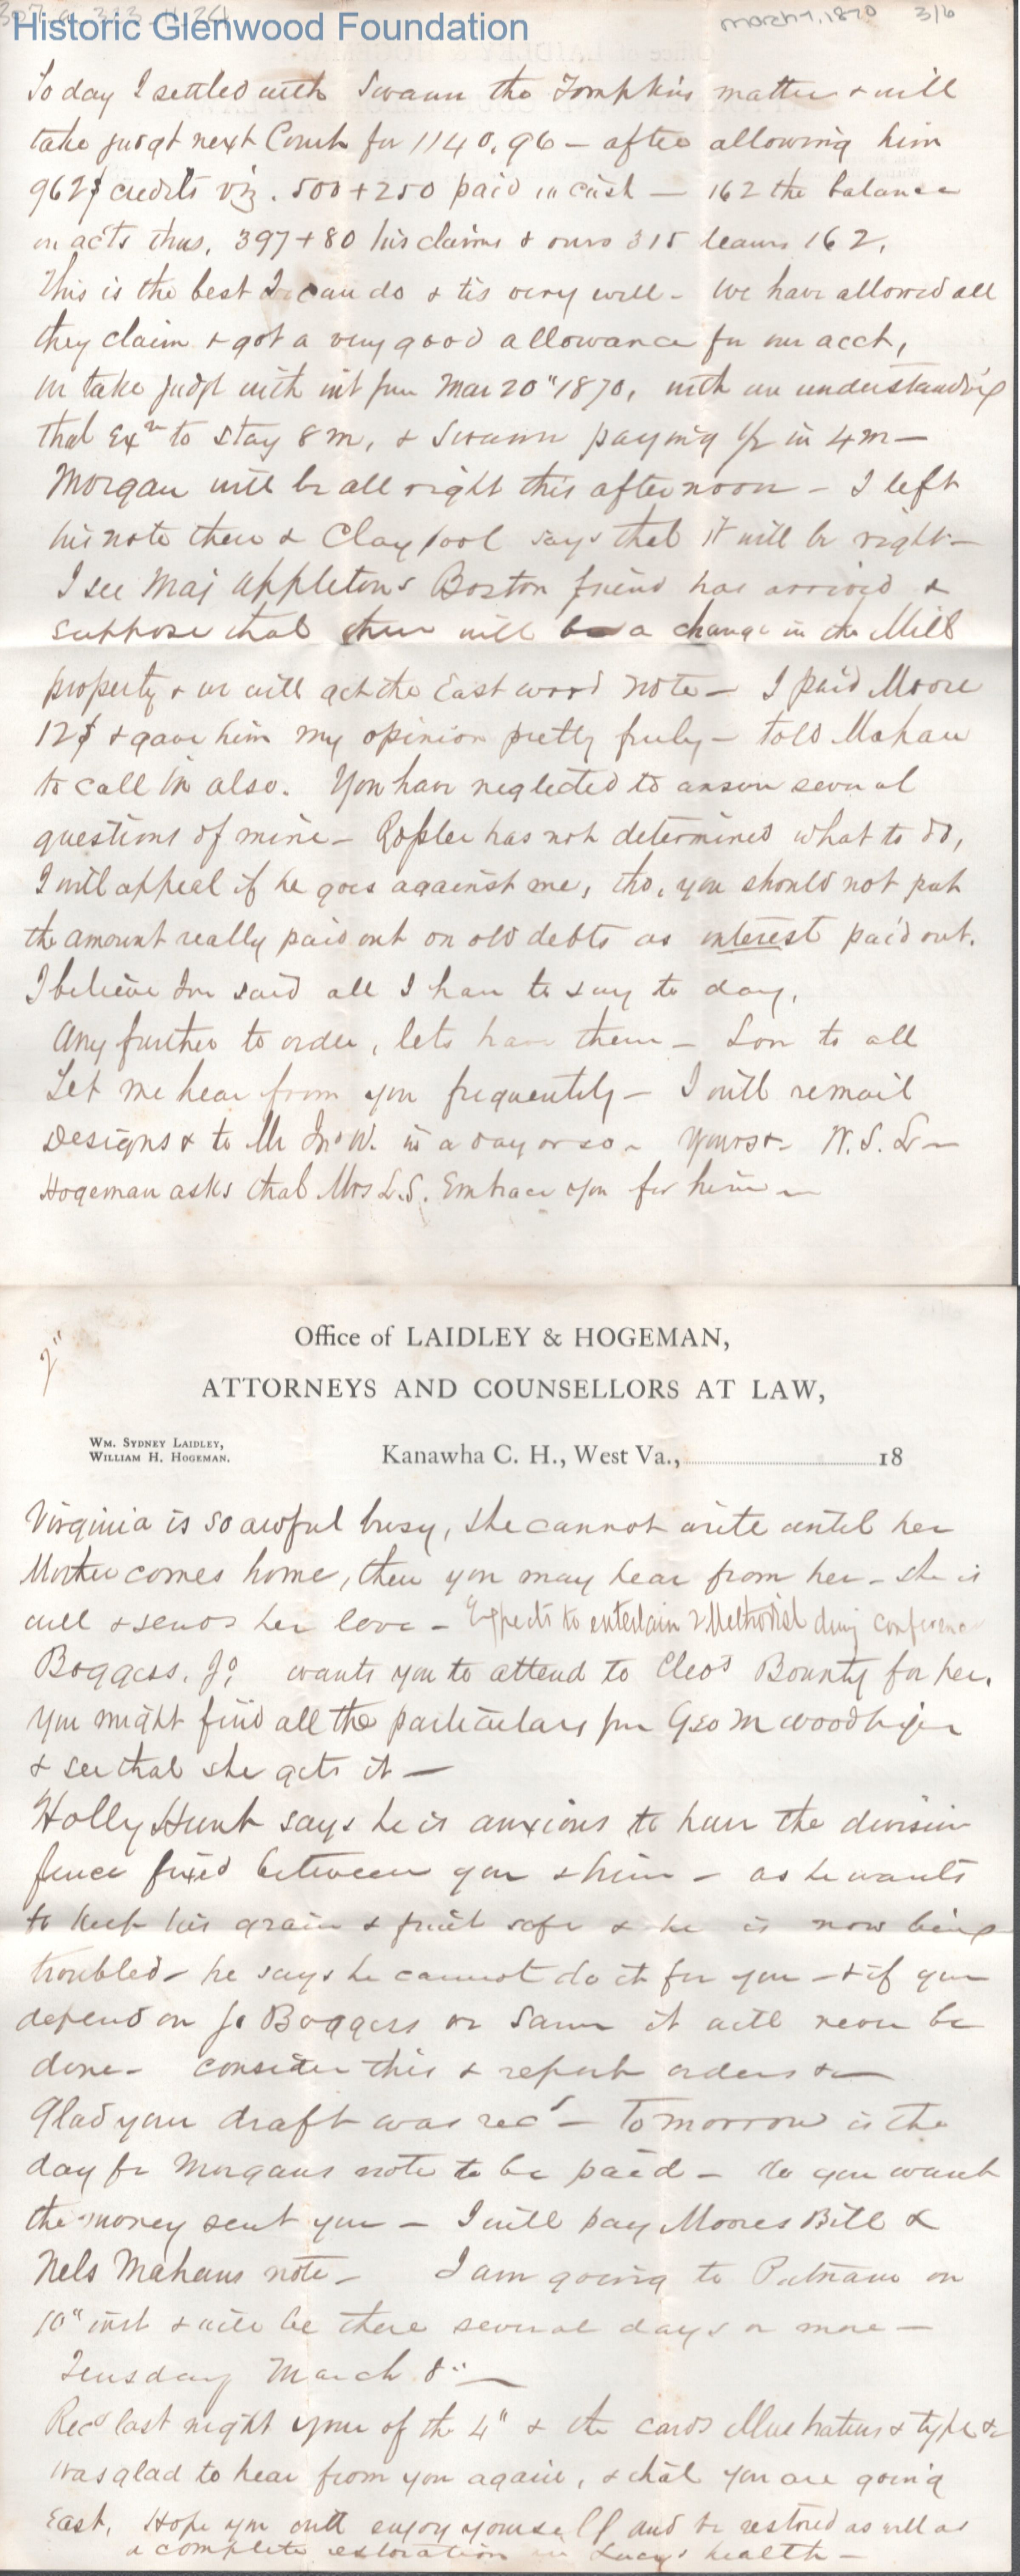 Historic Glenwood Foundation
March 7, 1870 3/6
To day I settled with Swann the Tompkins matter & will
take judgt next Court for 1140.96 – after allowing him
962$ credits viz. 500 + 250 paid in cash — 162 the balance
on acts thus, 397 + 80 his claims & ours 315 leaves 162.
This is the best I can do & tis very well – We have allowed all
they claim & got a very good allowance for our acct,
We take judgt with int from Mar 20" 1870, with an understanding
that Exn to stay 8 m, & Swann paying 1/2 in 4 m —
Morgan will be all right this afternoon – I left
his note there & Claypool says that it will be right –
I see Maj Appletons Boston friend has arrived &
suppose that there will be a change in the Mill
property & we will get the Eastwood note – I paid Moore
12$ & gave him my opinion pretty freely – told Mahan
to call in also. You have neglected to answer several
questions of mine – has not determined what to do,
I will appeal if he goes against me, tho, you should not put
the amount really paid out on old debts as interest paid out.
I believe Ive said all I have to say to day,
Any further to order, lets have them – Love to all
Let me hear from you frequently – I will remail
Designs & to Mr Jno W. in a day or so – Yours &c W. S. L –
Hogeman asks that Mrs L.S. Embrace you for him –
2"
Office of LAIDLEY & HOGEMAN,
ATTORNEYS AND COUNSELLORS AT LAW,
WM. SYDNEY LAIDLEY,
WILLIAM H. HOGEMAN.
Kanawha C. H., West Va., 18
Virginia is so awful busy, she cannot write until her
Mother comes home, then you may hear from her – she is
well & sends her love – Expects to entertain 2 Methodist during conference
Boggess. Jo, wants you to attend to Cleo's Bounty for her.
You might find all the particulars from Geo M
& see that she gets it —
Holly Hunt says he is anxious to have the division
fence fixed between you & him – as he wants
to keep his grain & fruit safe & he is now being
troubled – he says he cannot do it for you – & if you
depend on Jo Boggess or Sam it will never be
done – consider this & report orders &c —
Glad your draft was recd – Tomorrow is the
day for Morgans note to be paid – do you want
the money sent you – I will pay Moores Bill &
Nels Mahans note – I am going to Putnam on
10" inst & will be there several days or more —
Tuesday March 8" —
Recd last night your of the 4" & the cards Illustrations & type &c
Was glad to hear from you again, & that you are going
East, Hope you will enjoy yourself and be restored as well as
a complete restoration in Lucy's health —